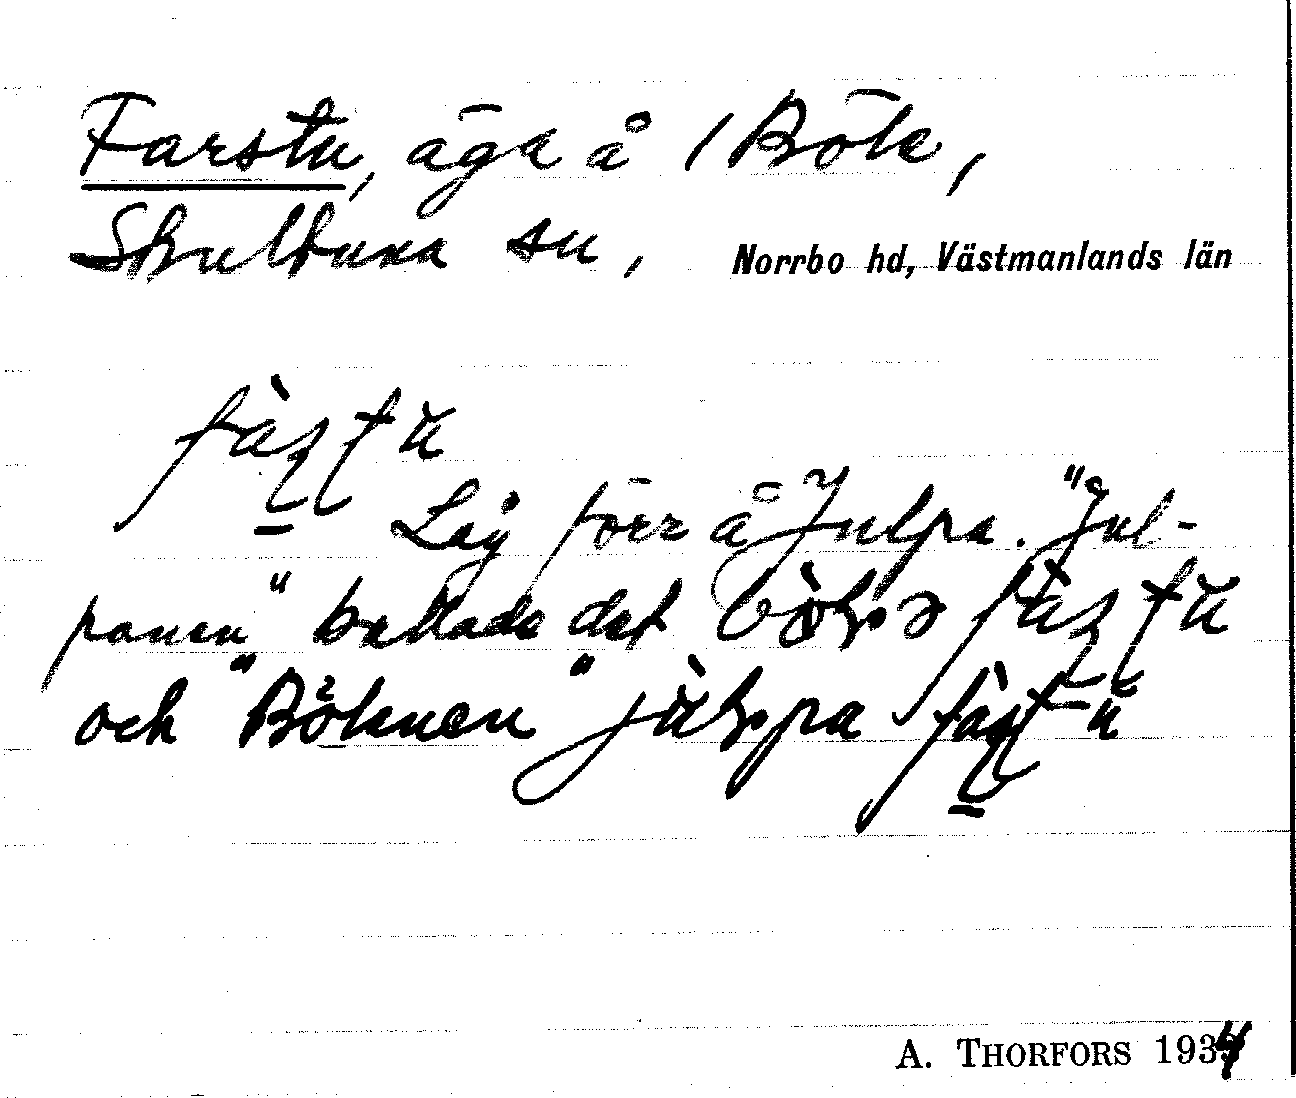 Farstu, äga å 1 Bök,
Skultuna sn, Norrbo hd, Västmanlands län
fàʂtu
Låg förr å Julpa. "Jul-
panen" kallade det fàʂtu
och "Böknen" fàʂtu
A. THORFORS 1934